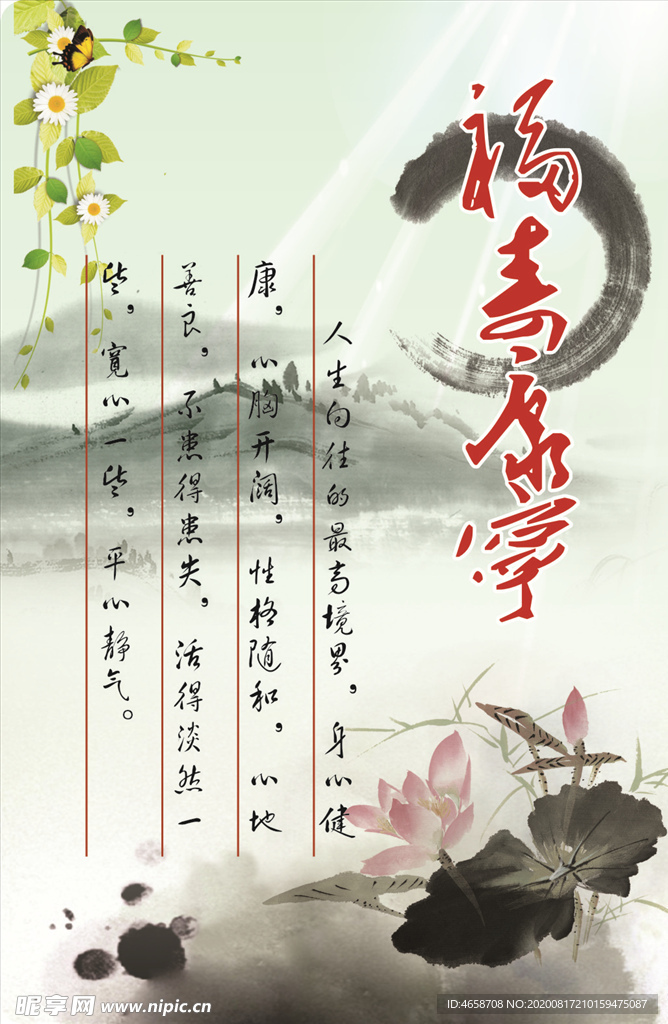 福寿康宁
人生向往的最高境界，身心健
康，心胸开阔，性格随和，心地
善良，不患得患失，活得淡然一
些，宽心一些，平心静气。
昵享网 www.nipic.cn
ID:4658708 NO:20200817210159475087